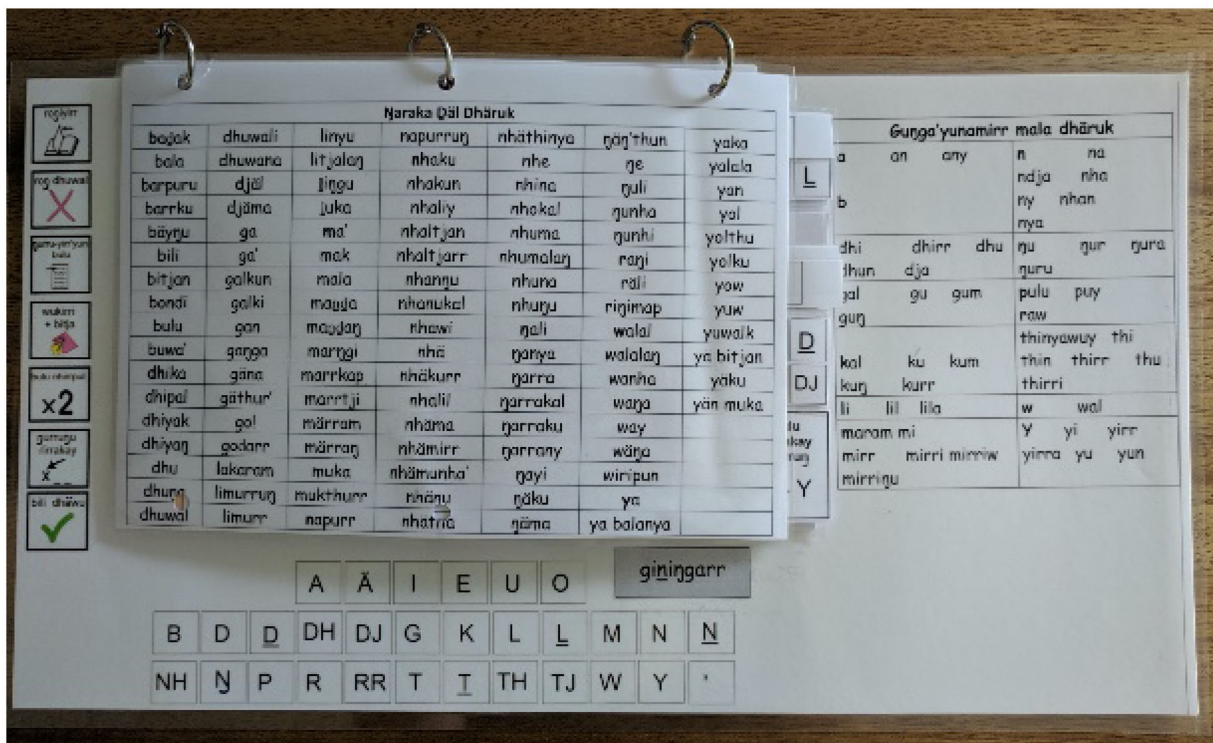 Ŋaraka Ḏäl Dhäruk
baḏak dhuwali linyu napurruŋ nhäthinya ŋäṉ'thun yaka
bala dhuwana litjalaŋ nhaku nhe ŋe yalala
barpuru djäl liŋgu nhakun nhina ŋuli yan
barrku djäma ḻuka nhaliy nhokal ŋunha yol
bäyŋu ga ma' nhaltjan nhuma ŋunhi yolthu
bili ga' mak nhaltjarr nhumalaŋ raŋi yolku
bitjan galkun mala nhanŋu nhuna räli yow
bondi galki maṉḏa nhanukal nhuŋu riŋimap yuw
bulu gan maṉḏaŋ nhawi ŋali walal yuwalk
buwa' gaŋga marŋgi nhä ŋanya walalaŋ ya bitjan
dhika gäna marrkap nhäkurr ŋarra wanha yäku
dhipal gäthur' marrtji nhälil ŋarrakal waŋa yän muka
dhiyak gol märram nhäma ŋarraku way
dhiyaŋ godarr märraŋ nhämirr ŋarrany wäŋa
dhu lakaram muka nhämunha' ŋayi wiripun
dhuŋa limurruŋ mukthurr nhänu ŋäku ya
dhuwal limurr napurr ŋäma ya balanya
wukirri
+ bitja
x2
x
bili dhäwu
Ḻ
Ḏ
DJ
Y
Guŋga'yunamirr mala dhäruk
a an any
n na
ndja nha
b
ny nhan
nya
dhi dhirr dhu
dhun dja
ŋu ŋur ŋura
ŋuru
gal gu gum
guŋ
pulu puy
raw
kal ku kum
kuŋ kurr
thinyawuy thi
thin thirr thu
thirri
li lil lila
w wal
maram mi
mirr mirri mirriw
mirriŋu
y yi yirr
yirra yu yun
giṉiŋgarr
A Ä I E U O
B D Ḏ DH DJ G K L Ḻ M N Ṉ
NH Ŋ P R RR T Ṯ TH TJ W Y '